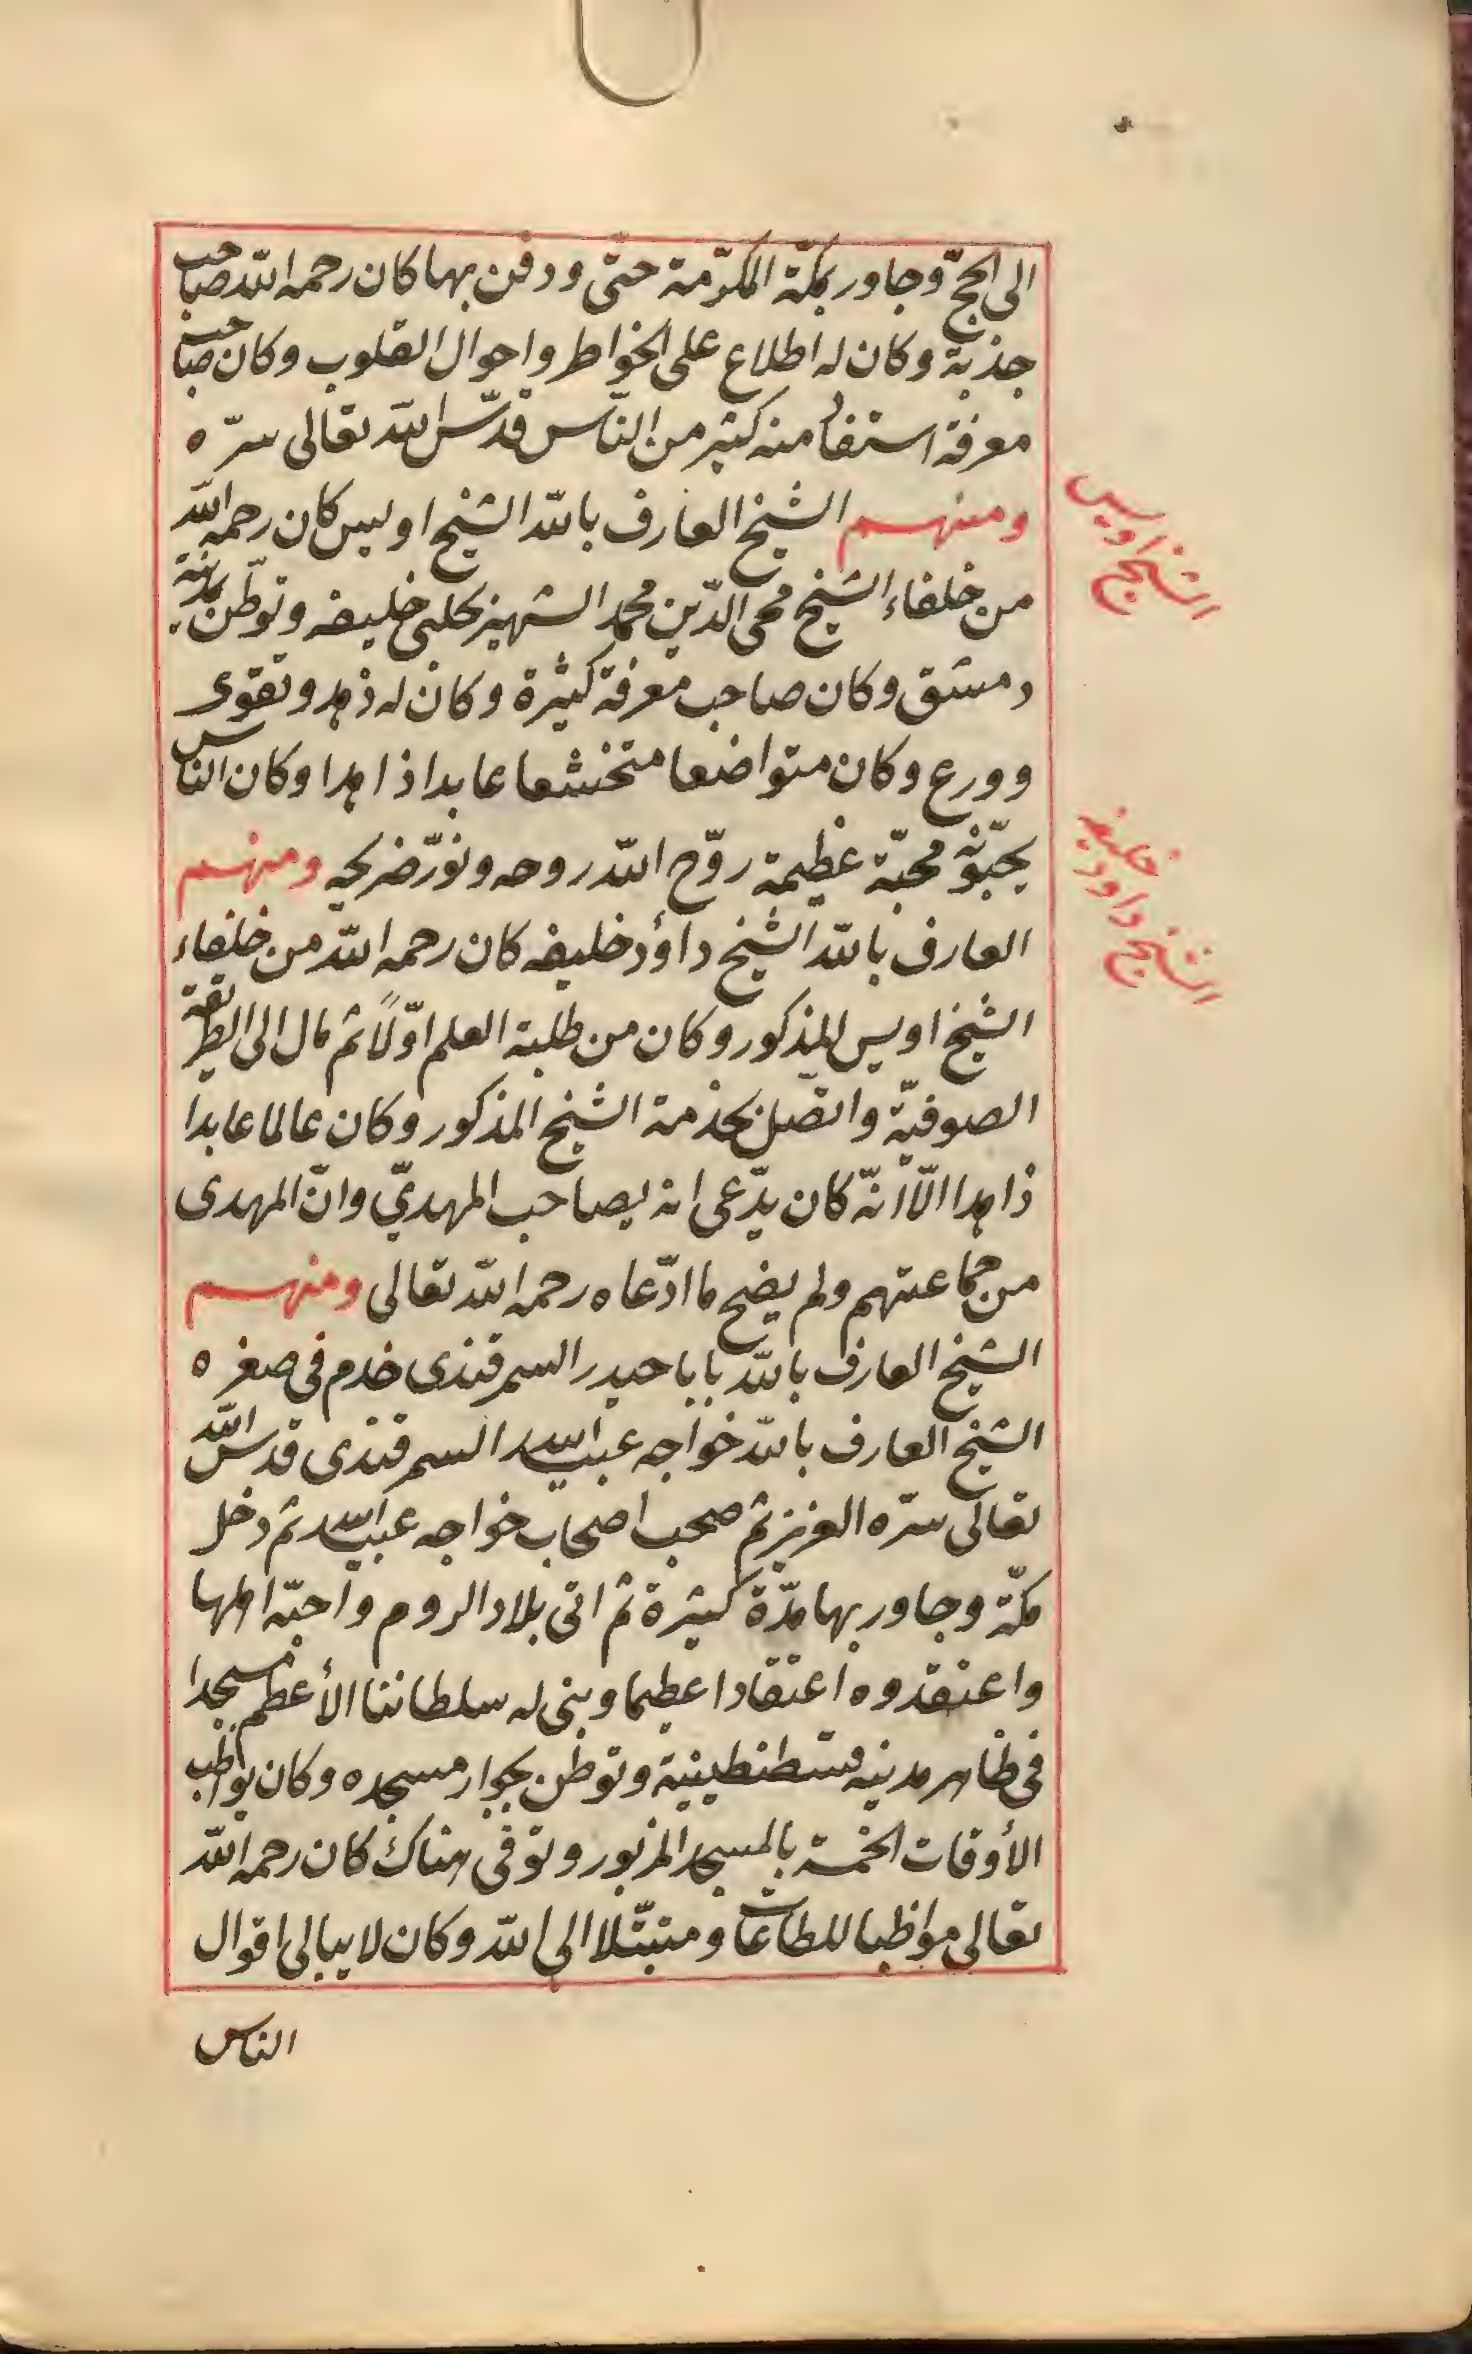 الى الحجّ وجاور بمكّة المكرّمة حتّى ودفن بها كان رحمه الله صاحب
جذبة وكان له اطلاع على الخواطر واحوال القلوب وكان صاحب
معرفة استفاد منه كثير من النّاس قدّس الله تعالى سرّه
ومنهم الشيخ العارف بالله الشيخ اويس كان رحمه الله
من خلفاء الشيخ محى الدّين محمد الشهير بحلبى خليفه وتوطّن بمدينة
دمشق وكان صاحب معرفة كثيرة وكان له ذهد وتقوى
وورع وكان متواضعا متخشعا عابدا ذاهدا وكان الناس
يحبّونه محبّة عظيمة روّح الله روحه ونوّر ضريحه ومنهم
العارف بالله الشيخ داؤد خليفه كان رحمه الله من خلفاء
الشيخ اويس المذكور وكان من طلبة العلم اوّلاً ثم مال الى الطريقة
الصوفيّة واتّصل بخدمة الشيخ المذكور وكان عالما عابدا
ذاهدا الّا انّه كان يدّعى انه يصاحب المهديّ وانّ المهدى
من جماعتهم ولم يضح ما ادّعاه رحمه الله تعالى ومنهم
الشيخ العارف بالله بابا حيدر السمرقندى خدم فى صغره
الشيخ العارف بالله خواجه عبيد الله السمرقندى قدس الله
تعالى سرّه العزيز ثم صحب اصحاب خواجه عبيد الله ثم دخل
مكّة وجاور بها مدّة كثيرة ثم اتى بلاد الروم واحبّه اهلها
واعتقدوه اعتقادا عظيما وبنى له سلطاننا الأعظم مسجدا
فى ظاهر مدنيه قسطنطينية وتوطن بجوار مسجده وكان يواظب
الأوقات الخمسة بالمسجد المزبور وتوفى هناك كان رحمه الله
تعالى مواظبا للطاعات ومتبتّلا الى الله وكان لا يبالى اقوال
الناس
الشيخ اويس
الشيخ داود
خليفه